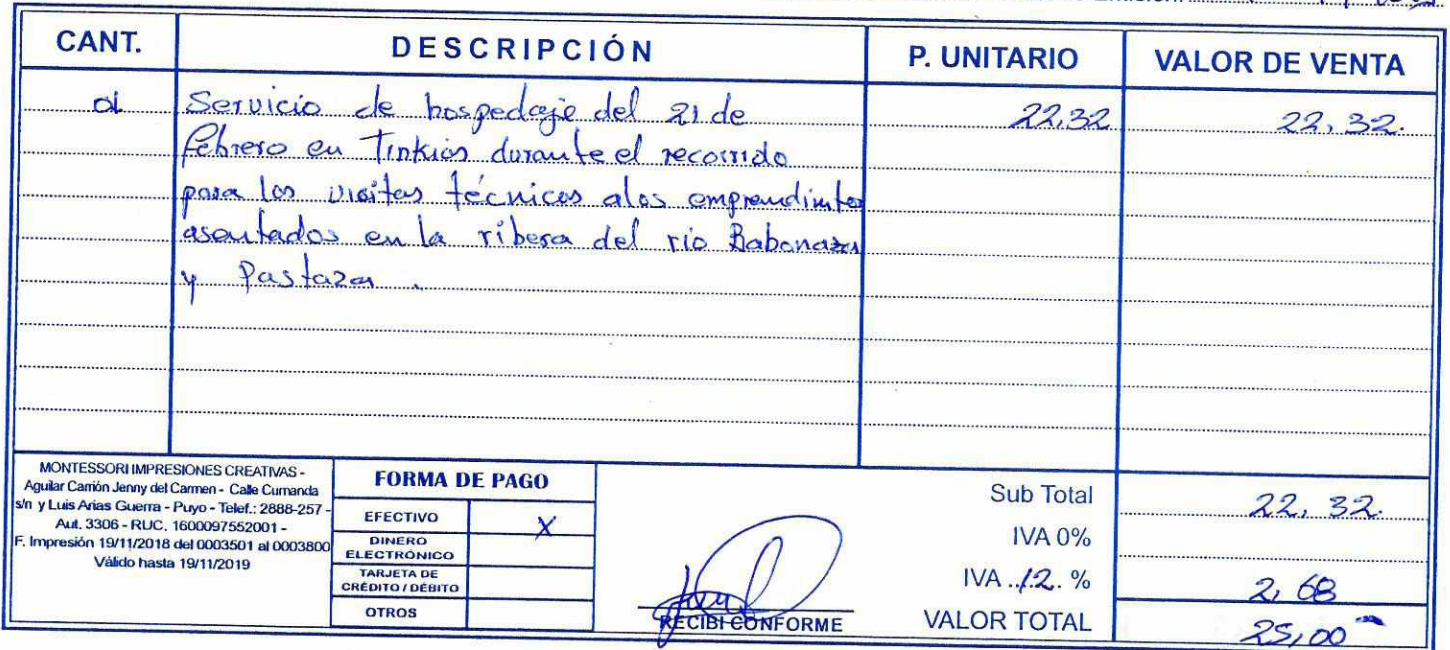 Emisión:
CANT. DESCRIPCIÓN P. UNITARIO VALOR DE VENTA
01 Servicio de hospedaje del 21 de 22,32 22,32.
febrero en Tinkias durante el recorrido
para las visitas técnicas a los emprendimtos
asentados en la ribera del rio Bobonaza
y Pastaza.
MONTESSORI IMPRESIONES CREATIVAS -
Aguilar Carrión Jenny del Carmen - Calle Cumanda
s/n y Luis Arias Guerra - Puyo - Telef.: 2888-257 -
Aut. 3306 - RUC. 1600097552001 -
F. Impresión 19/11/2018 del 0003501 al 0003800
Válido hasta 19/11/2019
FORMA DE PAGO
EFECTIVO X
DINERO ELECTRÓNICO
TARJETA DE CRÉDITO / DÉBITO
OTROS
RECIBI CONFORME
Sub Total 22,32.
IVA 0%
IVA 12 % 2,68
VALOR TOTAL 25,00